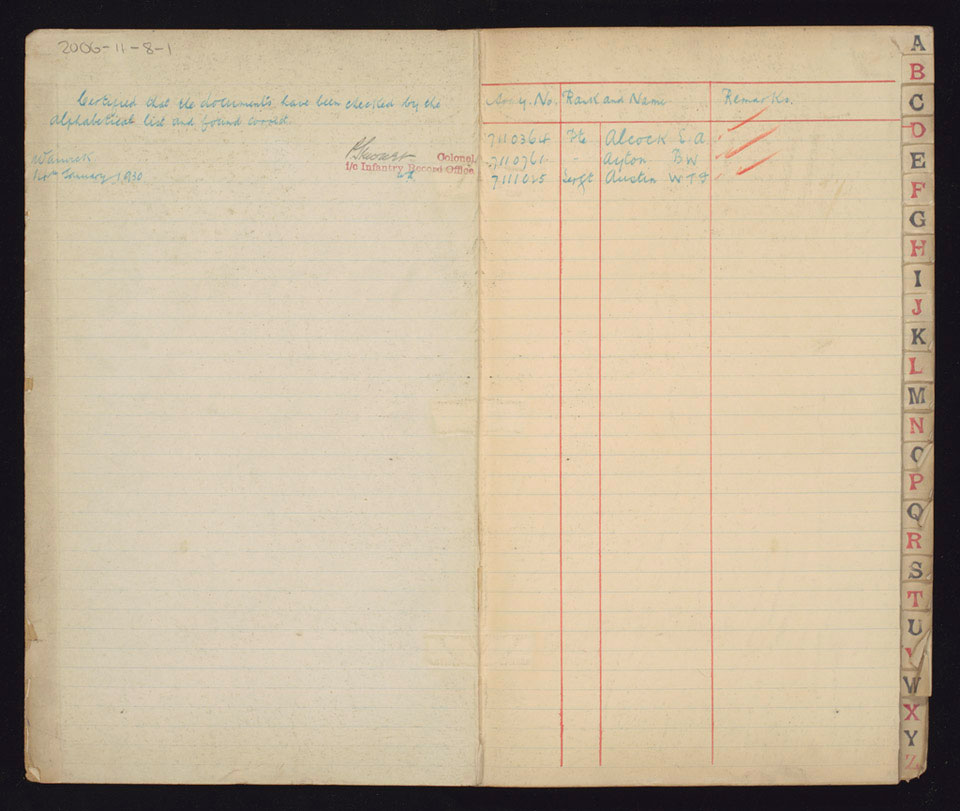 2006-11-8-1
Certified that the documents have been checked by the
alphabetical list and found correct.
Warwick
January 1930
Colonel.
i/c Infantry Record Office
Army. No. Rank and Name Remarks.
7110364 Pte Alcock E. A.
7110761 " Ayton B W
7111025 Sergt Austin W T J
A
B
C
D
E
F
G
H
I
J
K
L
M
N
O
P
Q
R
S
T
U
V
W
X
Y
Z